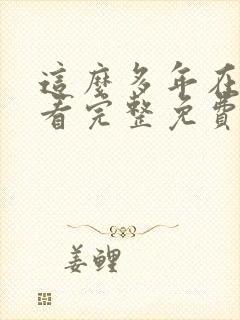 這麼多年在
看完整免費
姜鯉